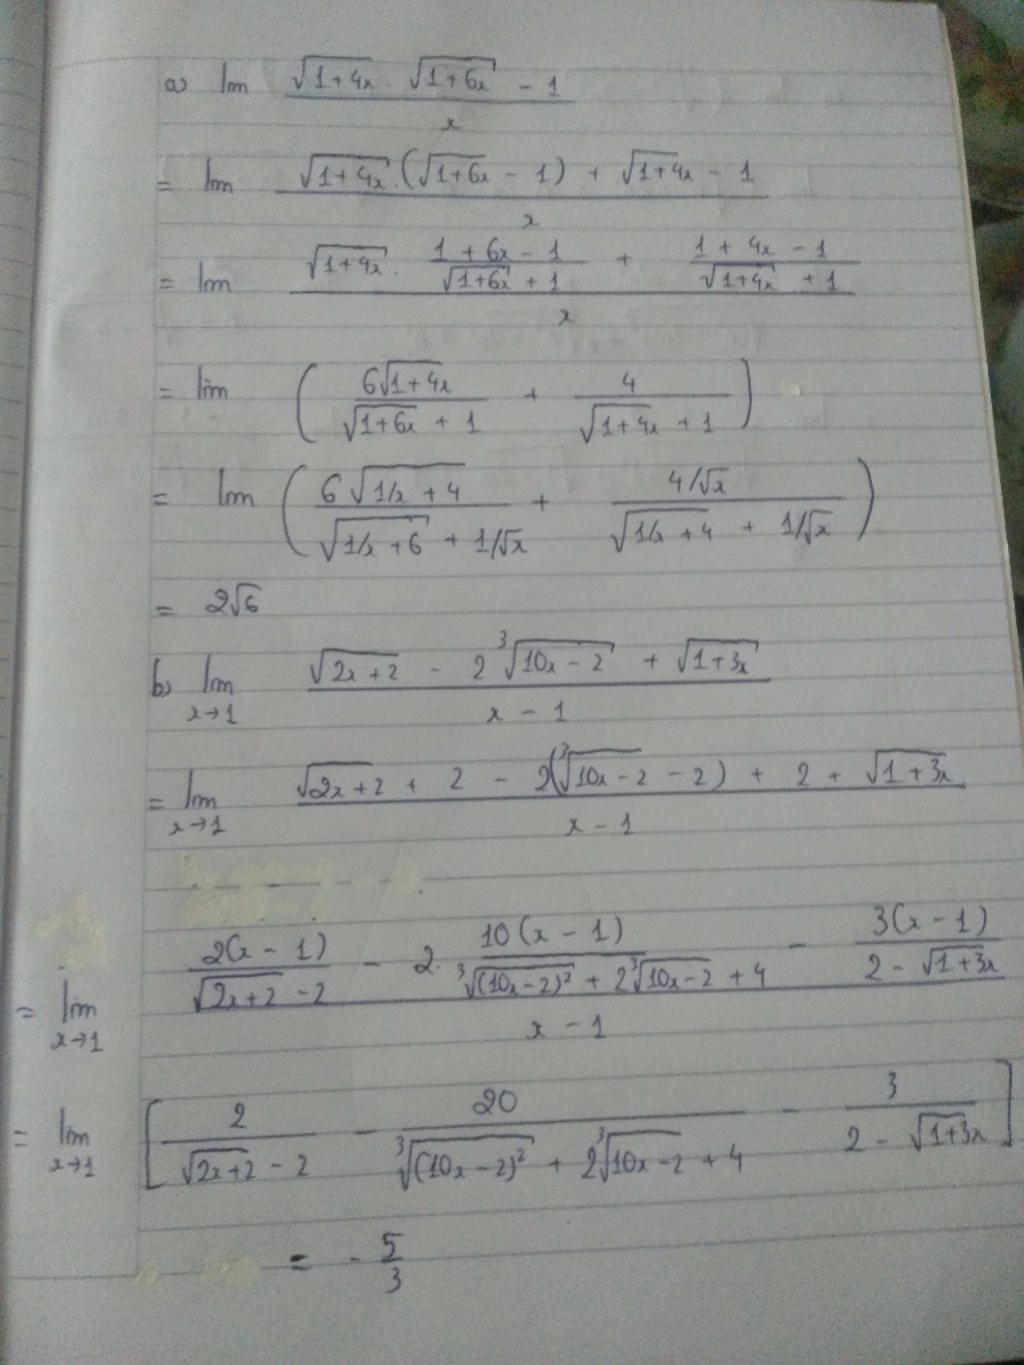 a) lim (√(1+4x) . √(1+6x) - 1) / x
= lim (√(1+4x) . (√(1+6x) - 1) + √(1+4x) - 1) / x
= lim (√(1+4x) . (1 + 6x - 1)/(√(1+6x) + 1) + (1 + 4x - 1)/(√(1+4x) + 1)) / x
= lim ( 6√(1+4x) / (√(1+6x) + 1) + 4 / (√(1+4x) + 1) )
= lim ( 6√(1/x + 4) / (√(1/x + 6) + 1/√x) + (4/√x) / (√(1/x + 4) + 1/√x) )
= 2√6
b) lim x→1 (√(2x+2) - 2 ∛(10x-2) + √(1+3x)) / (x - 1)
= lim x→1 (√(2x+2) + 2 - 2(∛(10x-2) - 2) + 2 + √(1+3x)) / (x - 1)
= lim x→1 (2(x - 1)/(√(2x+2) - 2) - 2. 10(x - 1)/(∛((10x-2)²) + 2∛(10x-2) + 4) - 3(x - 1)/(2 - √(1+3x))) / (x - 1)
= lim x→1 [ 2/(√(2x+2) - 2) - 20/(∛((10x-2)²) + 2∛(10x-2) + 4) - 3/(2 - √(1+3x)) ]
= - 5/3